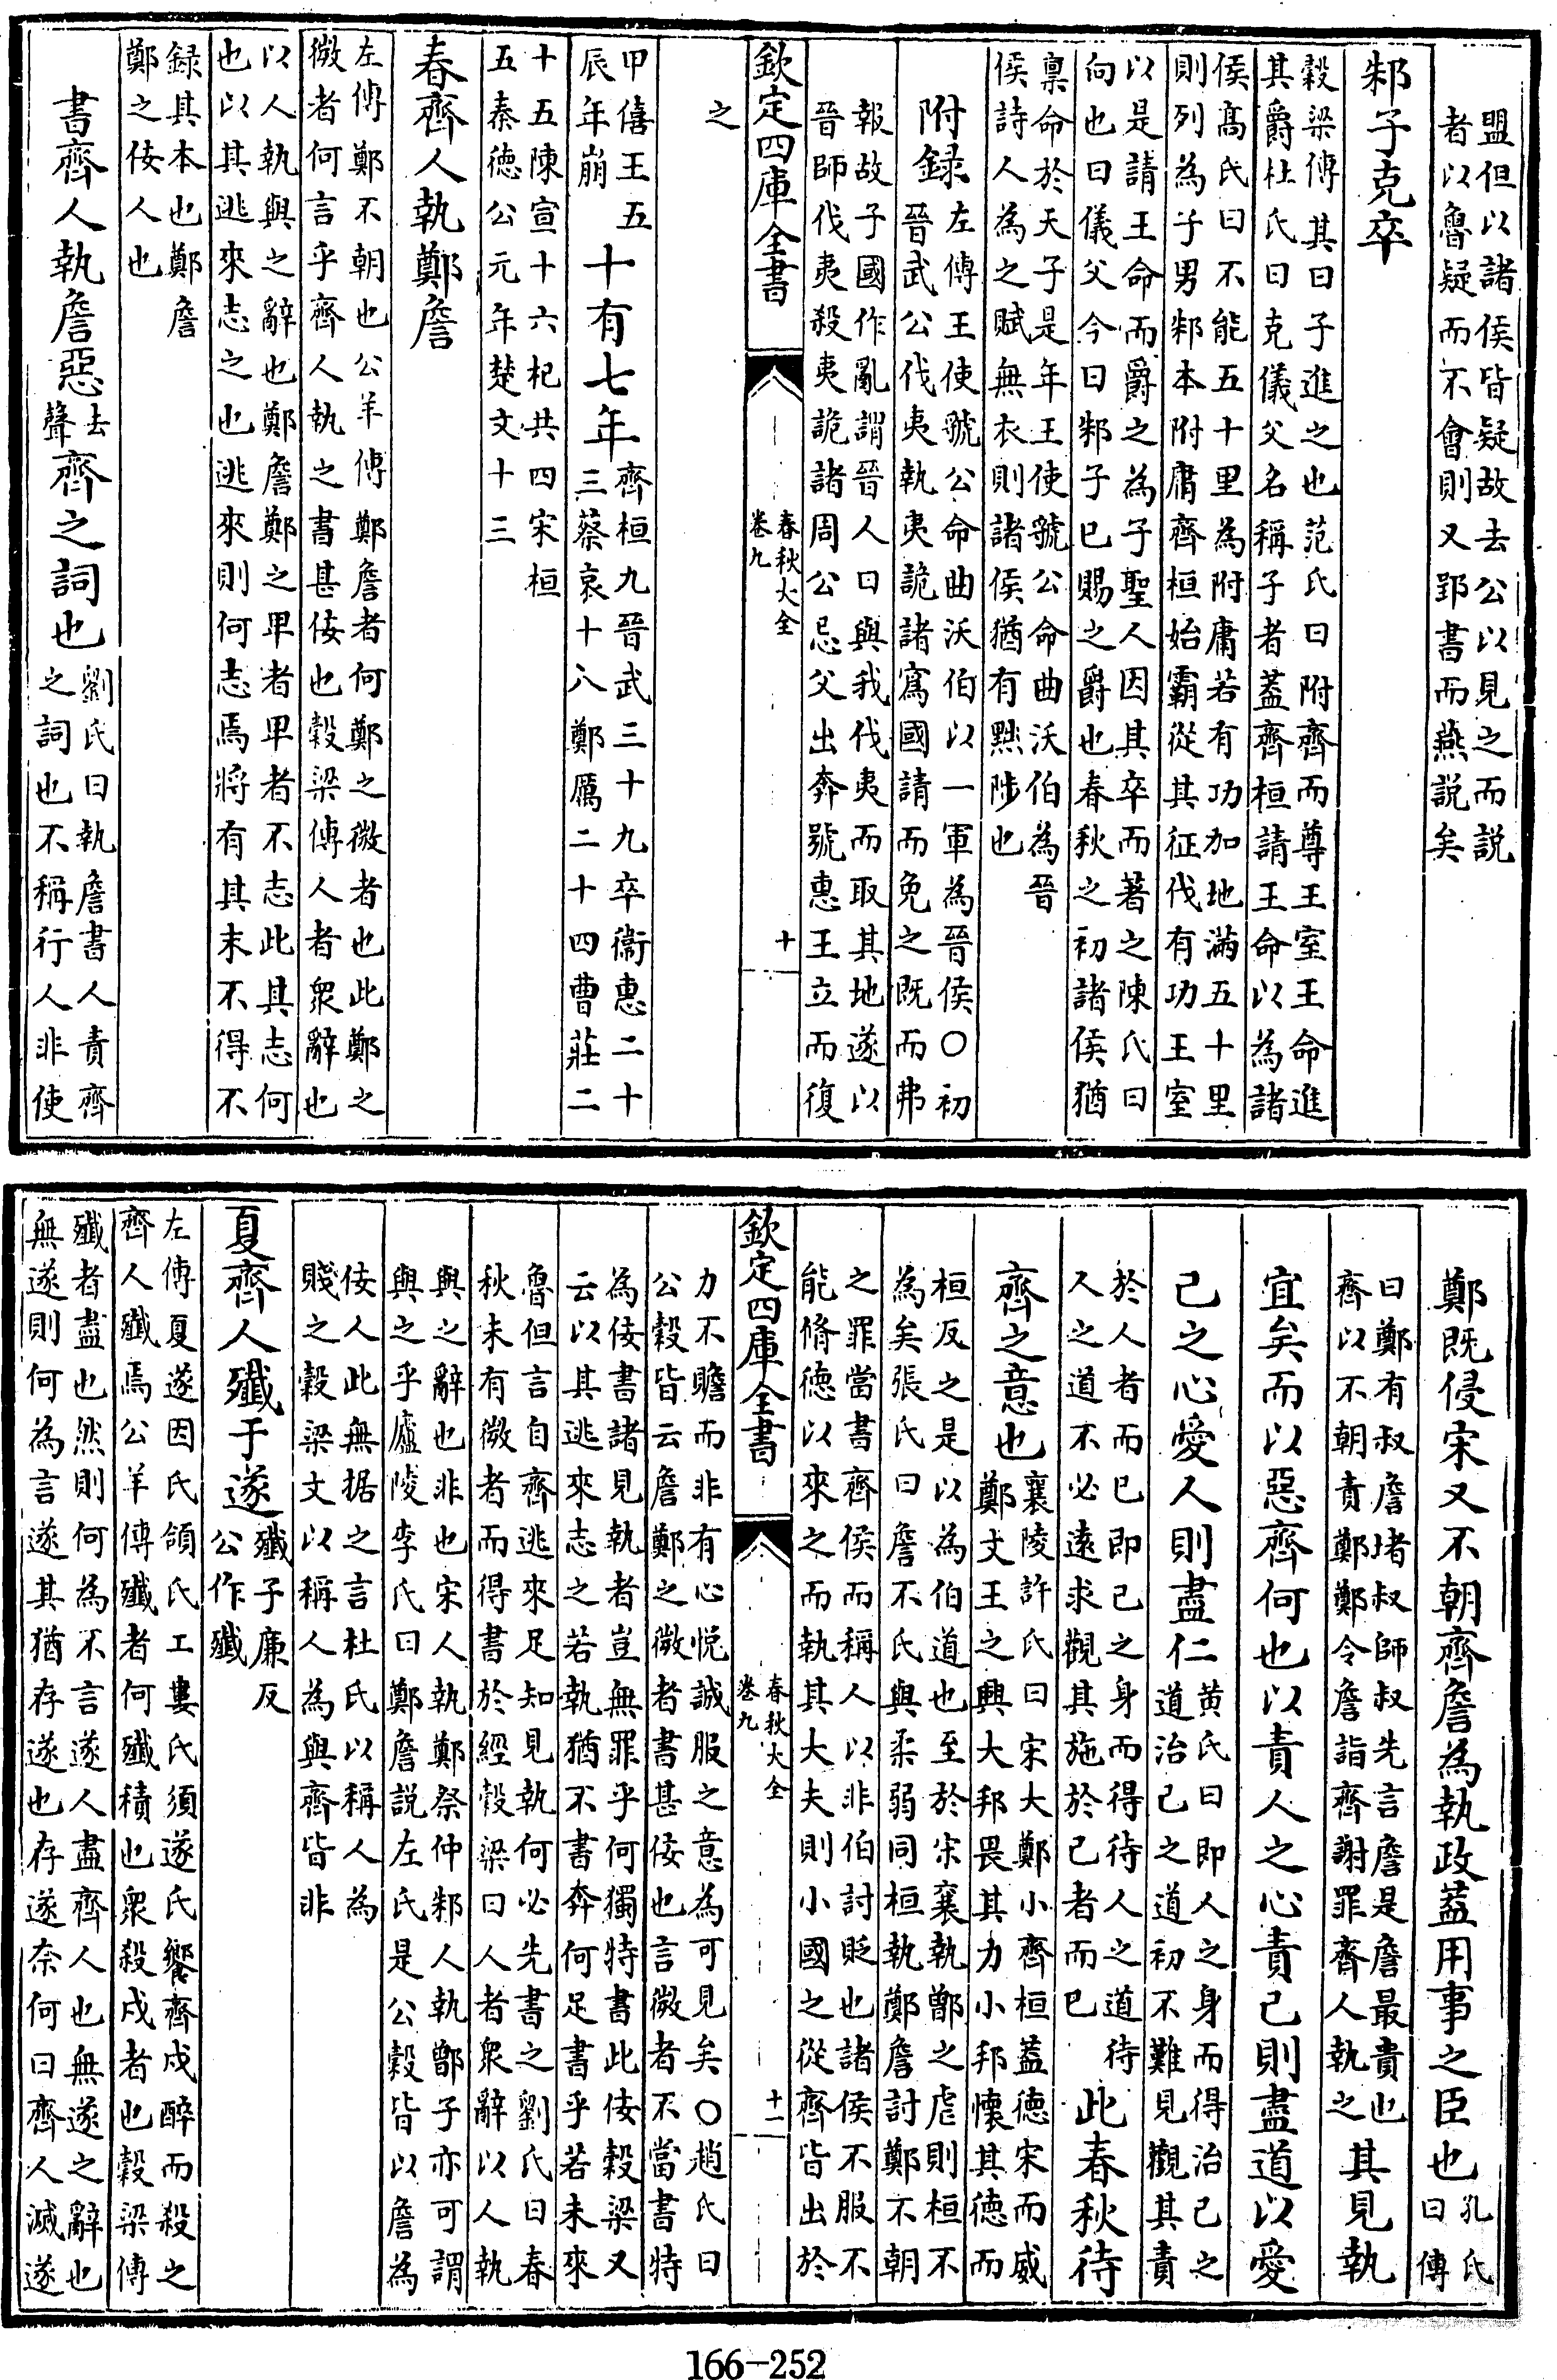 盟但以諸侯皆疑故去公以見之而説
者以魯疑而不會則又郢書而燕説矣
邾子克卒
穀梁傳其曰子進之也范氏曰附齊而尊王室王命進
其爵杜氏曰克儀父名稱子者蓋齊桓請王命以為諸
侯髙氏曰不能五十里為附庸若有功加地滿五十里
則列為子男邾本附庸齊桓始霸從其征伐有功王室
以是請王命而爵之為子聖人因其卒而著之陳氏曰
向也曰儀父今曰邾子已賜之爵也春秋之初諸侯猶
禀命於天子是年王使虢公命曲沃伯為晉
侯詩人為之賦無衣則諸侯猶有黜陟也
附録左傳王使虢公命曲沃伯以一軍為晉侯○初
晉武公伐夷執夷詭諸蔿國請而免之既而弗
報故子國作亂謂晉人曰與我伐夷而取其地遂以
晉師伐夷殺夷詭諸周公忌父出奔虢惠王立而復
之
欽定四庫全書
春秋大全
卷九
十
甲僖王五
辰年崩
十有七年齊桓九晉武三十九卒衞惠二十
三蔡哀十八鄭厲二十四曹莊二
十五陳宣十六杞共四宋桓
五秦德公元年楚文十三
春齊人執鄭詹
左傳鄭不朝也公羊傳鄭詹者何鄭之微者也此鄭之
微者何言乎齊人執之書甚佞也穀梁傳人者衆辭也
以人執與之辭也鄭詹鄭之卑者卑者不志此其志何
也以其逃來志之也逃來則何志焉將有其末不得不
録其本也鄭詹
鄭之佞人也
書齊人執詹惡去聲齊之詞也劉氏曰執詹書人責齊
之詞也不稱行人非使
鄭既侵宋又不朝齊詹為執政蓋用事之臣也孔氏
曰傳
曰鄭有叔詹堵叔師叔先言詹是詹最貴也
齊以不朝責鄭鄭令詹詣齊謝罪齊人執之其見執
宜矣而以惡齊何也以責人之心責己則盡道以愛
己之心愛人則盡仁黄氏曰即人之身而得治己之
道治己之道初不難見觀其責
於人者而已即己之身而得待人之道待
人之道不必遠求觀其施於己者而已此春秋待
齊之意也襄陵許氏曰宋大鄭小齊桓蓋德宋而威
鄭文王之興大邦畏其力小邦懷其德而
桓反之是以為伯道也至於宋襄執鄫之虐則桓不
為矣張氏曰詹不氏與柔弱同桓執鄭詹討鄭不朝
之罪當書齊侯而稱人以非伯討貶也諸侯不服不
能脩德以來之而執其大夫則小國之從齊皆出於
欽定四庫全書
春秋大全
卷九
十一
力不贍而非有心悦誠服之意為可見矣○趙氏曰
公穀皆云詹鄭之微者書甚佞也言微者不當書特
為佞書諸見執者豈無罪乎何獨特書此佞穀梁又
云以其逃來志之若執猶不書奔何足書乎若未來
魯但言自齊逃來足知見執何必先書之劉氏曰春
秋未有微者而得書於經穀梁曰人者衆辭以人執
與之辭也非也宋人執鄭祭仲邾人執鄫子亦可謂
與之乎廬陵李氏曰鄭詹説左氏是公穀皆以詹為
佞人此無据之言杜氏以稱人為
賤之穀梁文以稱人為與齊皆非
夏齊人殲于遂殲子亷反
公作瀸
左傳夏遂因氏頜氏工婁氏須遂氏饗齊戍醉而殺之
齊人殲焉公羊傳瀸者何瀸積也衆殺戍者也穀梁傳
殲者盡也然則何為不言遂人盡齊人也無遂之辭也
無遂則何為言遂其猶存遂也存遂奈何曰齊人滅遂
166-252